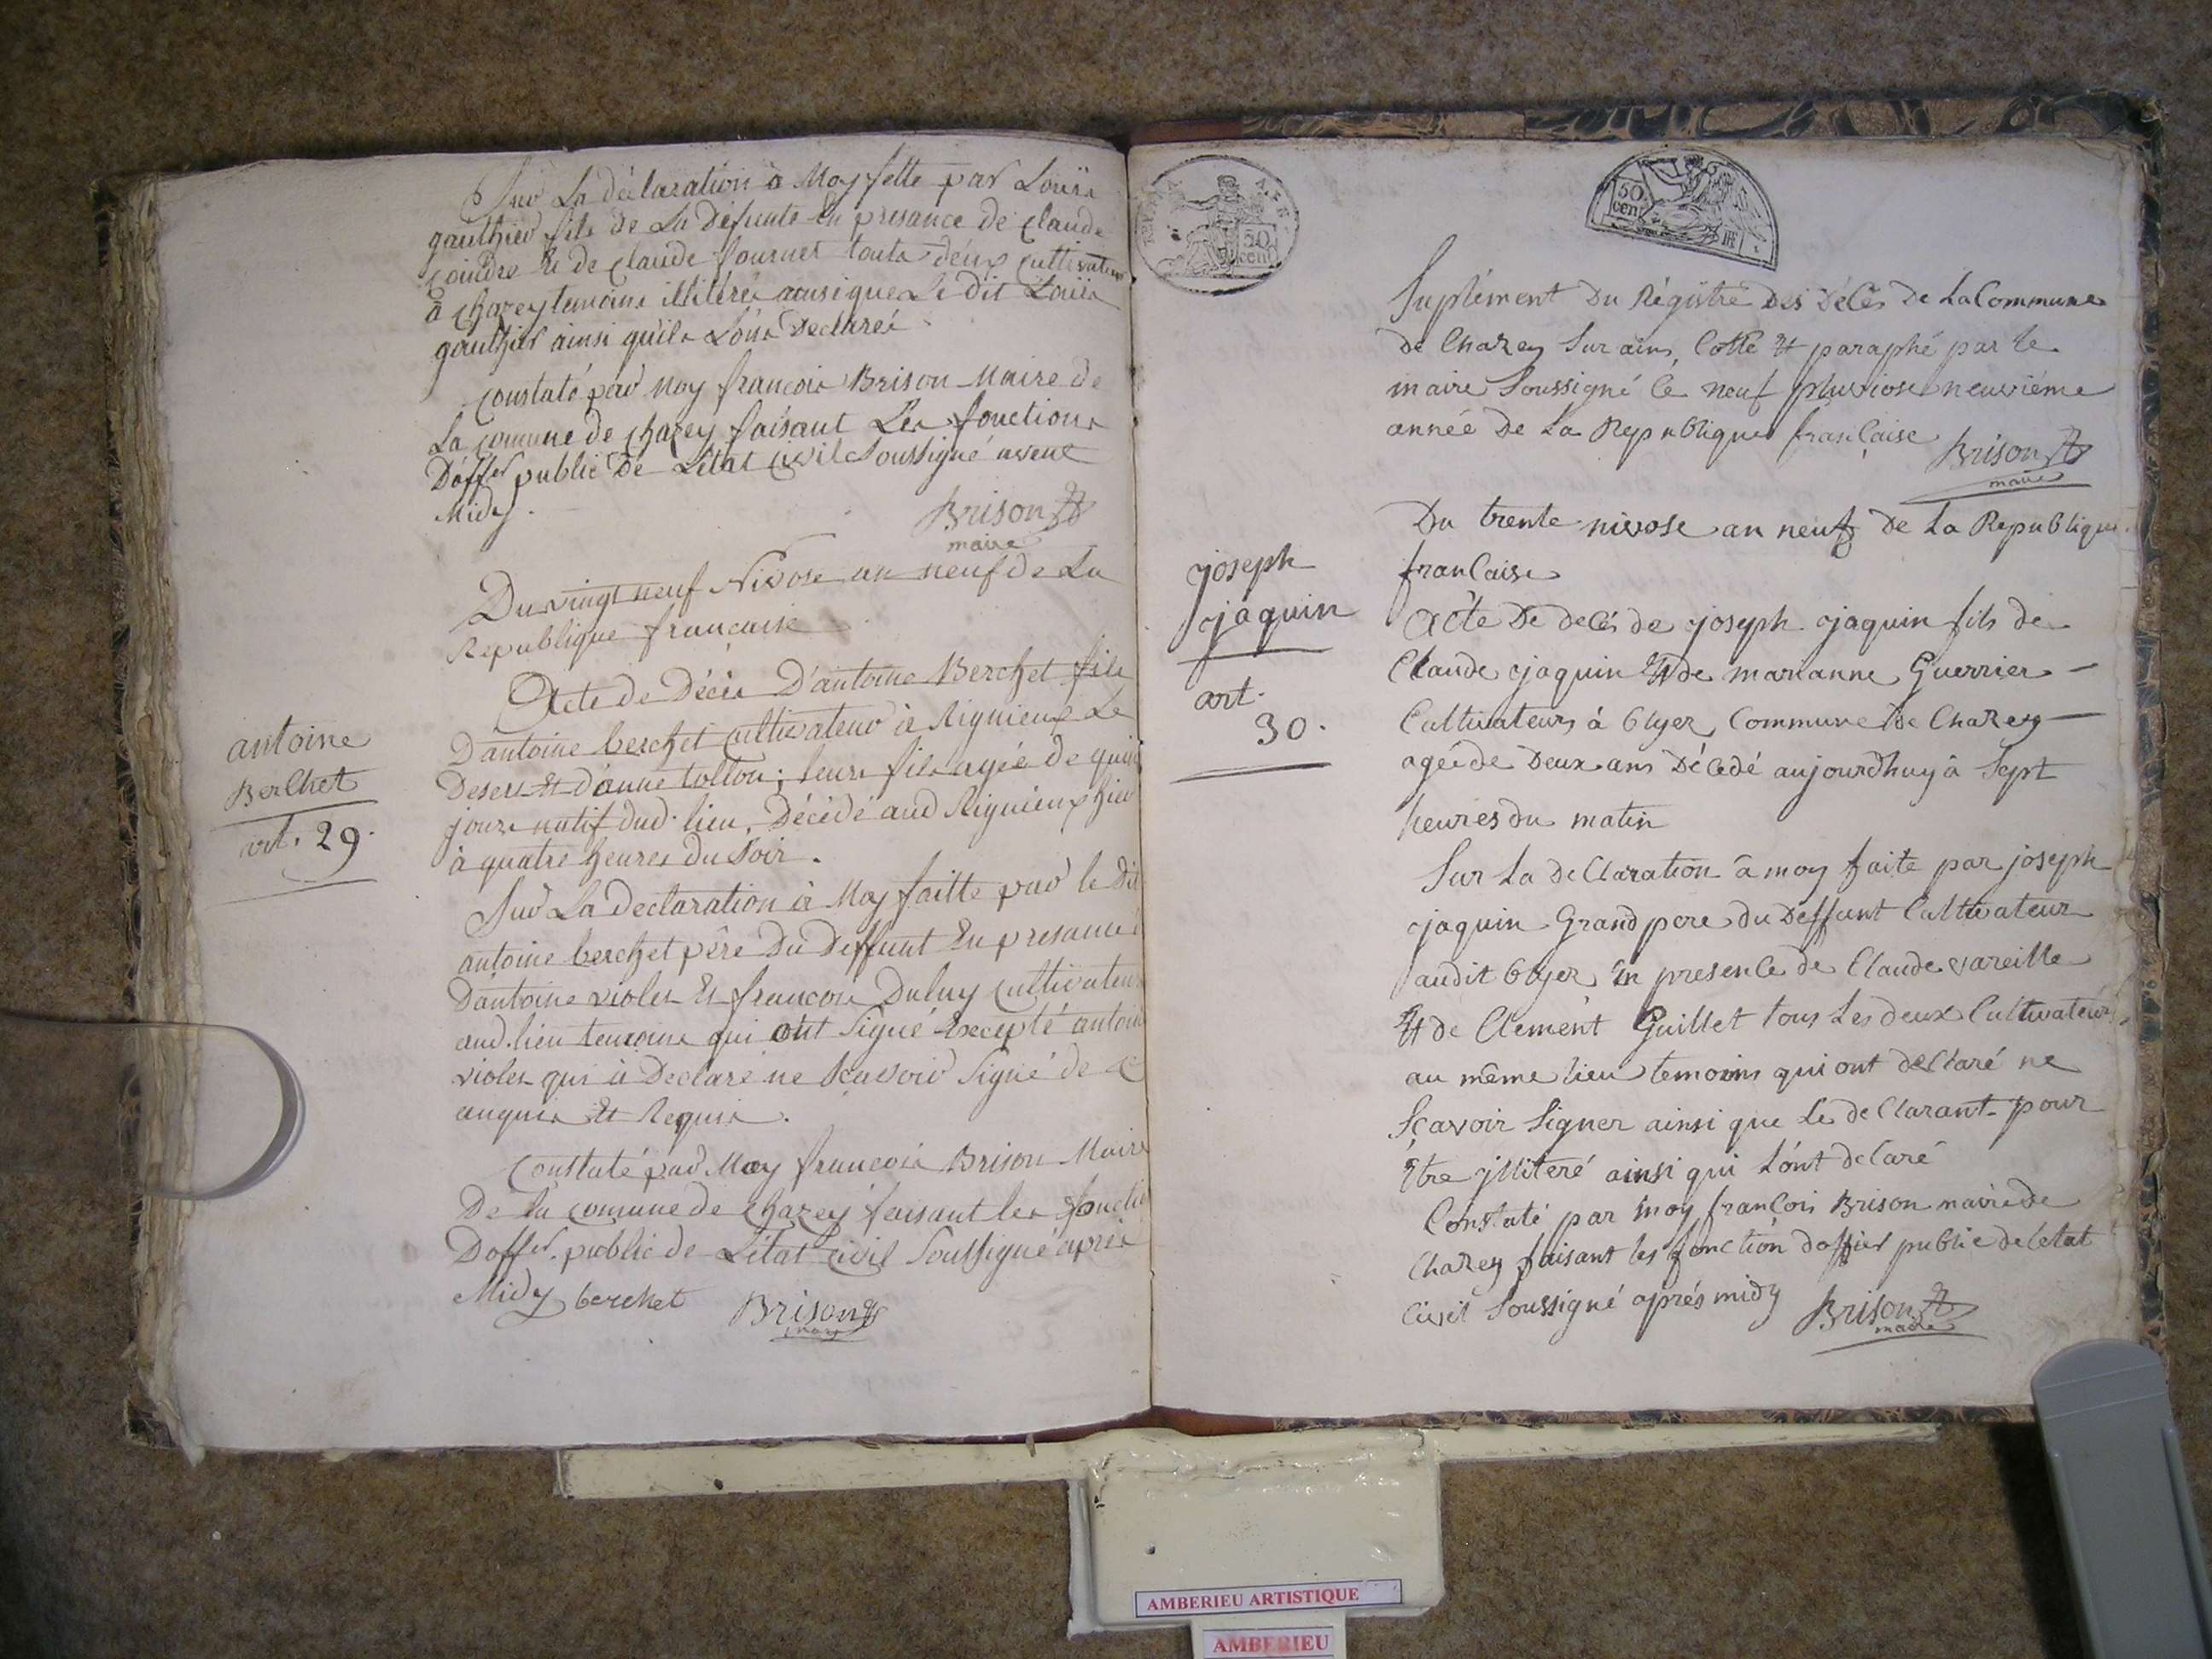 Sur La déclaration à Moy fette par Louis
gauthier fils de La Defunte En presance de Claude
Coindre Et de Claude fournet touts deux Cultivateurs
à Chazey temoins illiterés ainsi que Le dit Louis
gauthier ainsi quils Lons Declareé
Constaté par Moy francois Brison Maire de
La comune de Chazey faisant Les fonctions
D'offer public De L'Etat Civil Soussigné avent
Midy.
Brison
maire
Du vingt neuf Nivose an neuf de La
Republique francaise
Acte de Décès D'antoine Berchet fils
D'antoine berchet Cultivateur à Rignieux Le
Desert Et d'anne tollon; leurs fils agée de
jours natif dud. lieu, Décédé aud Rignieux hier
à quatre heures du Soir.
antoine
Berchet
art. 29.
Sur La declaration à Moy faitte par le Dit
antoine berchet père Du Deffunt En presance
D'antoine violet Et francois Duluy Cultivateurs
aud. lieu temoins qui ont Signé Excepté antoine
violet qui à Declaré ne Scavoir Signé de ce
anquis Et Requis.
Constaté par Moy francois Brison Maire
De la comune de Chazey faisant les fonctio
D'offer. public de L'état Civil Soussigné après
Midy berchet Brison
maire
REP. FRA
50
cent
50
cent
Suplément Du Régistre Des Décès De La Commune
de Chazey Sur ain, Cotté Et paraphé par le
maire Soussigné le neuf pluviose neuvième
année De La Republique française
Brison
maire
Du trente nivose an neuf De La Republique
francaise
joseph
jaquin
art.
30.
Acte De decés de joseph jaquin fils de
Claude jaquin Et de marianne Guerrier
Cultivateurs à blyer Commune De Chazey
agée de Deux ans Décedé aujourdhuy à Sept
heures du matin
Sur La DeClaration à moy faite par joseph
jaquin Grand pere du Deffunt Cultivateur
audit blyer En presence de Claude vareille
Et de Clement Guillet tous Les deux Cultivateurs
au même lieu temoins qui ont deClaré ne
Sçavoir Signer ainsi que Le deClarant pour
Etre jlliteré ainsi qui L'ónt declaré
Constaté par moy françois Brison maire de
Chazey faisant les fonction doffier public de letat
Civil Soussigné aprés midy Brison
maire
AMBERIEU ARTISTIQUE
AMBERIEU